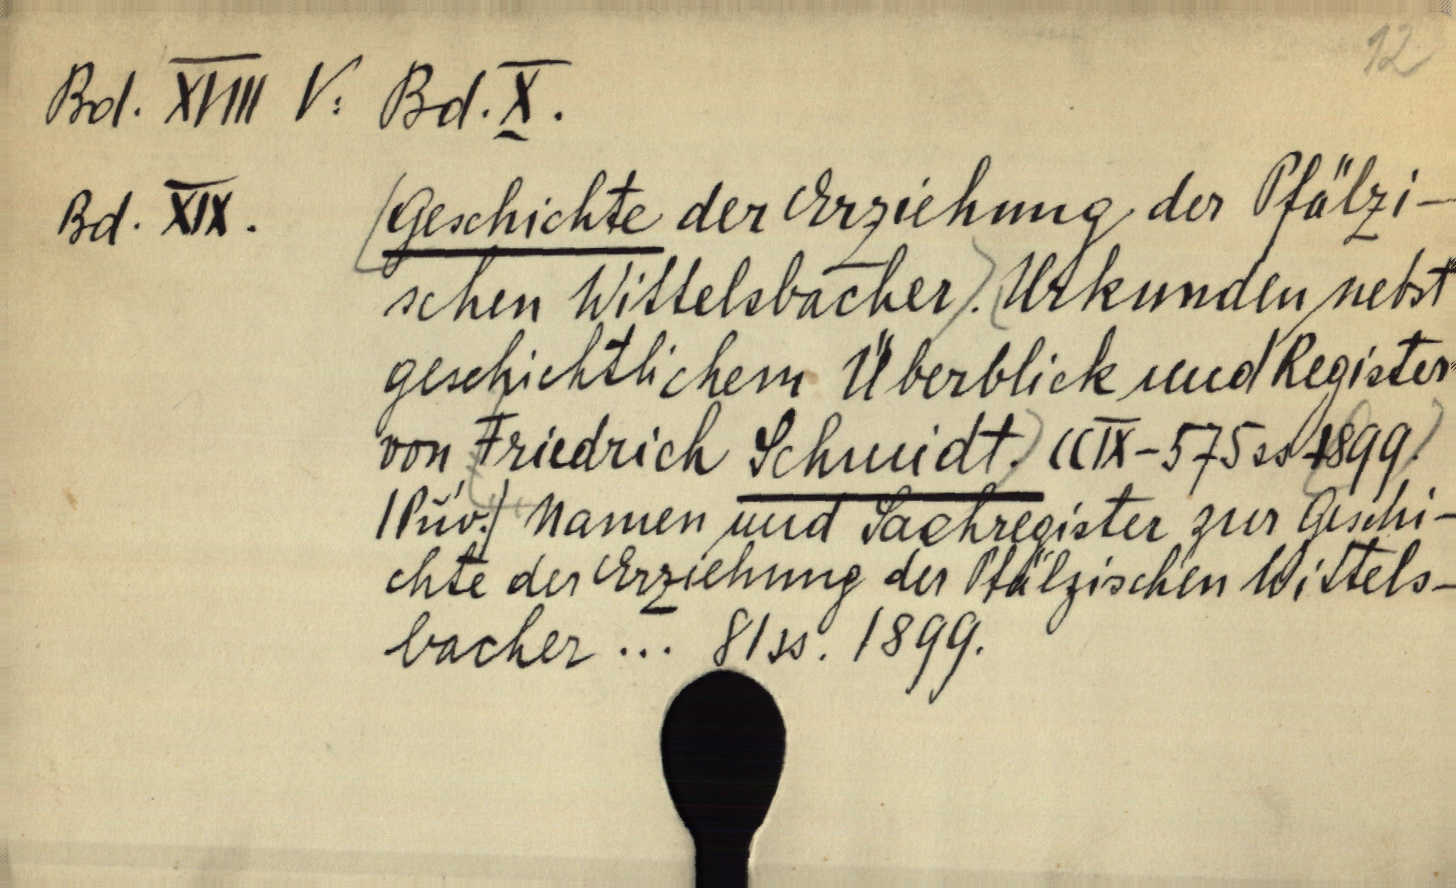 12
Bd. XVIII V: Bd. X.
Bd. XIX. (Geschichte der Erziehung der Pfälzi-
schen Wittelsbacher). (Urkunden nebst
geschichtlichem Überblick und Register
von Friedrich Schmidt.) CCIX-575ss (1899.)
/Pův./ Namen und Sachregister zur Geschi-
chte der Erziehung der Pfälzischen Wittels-
bacher ... 81ss. 1899.